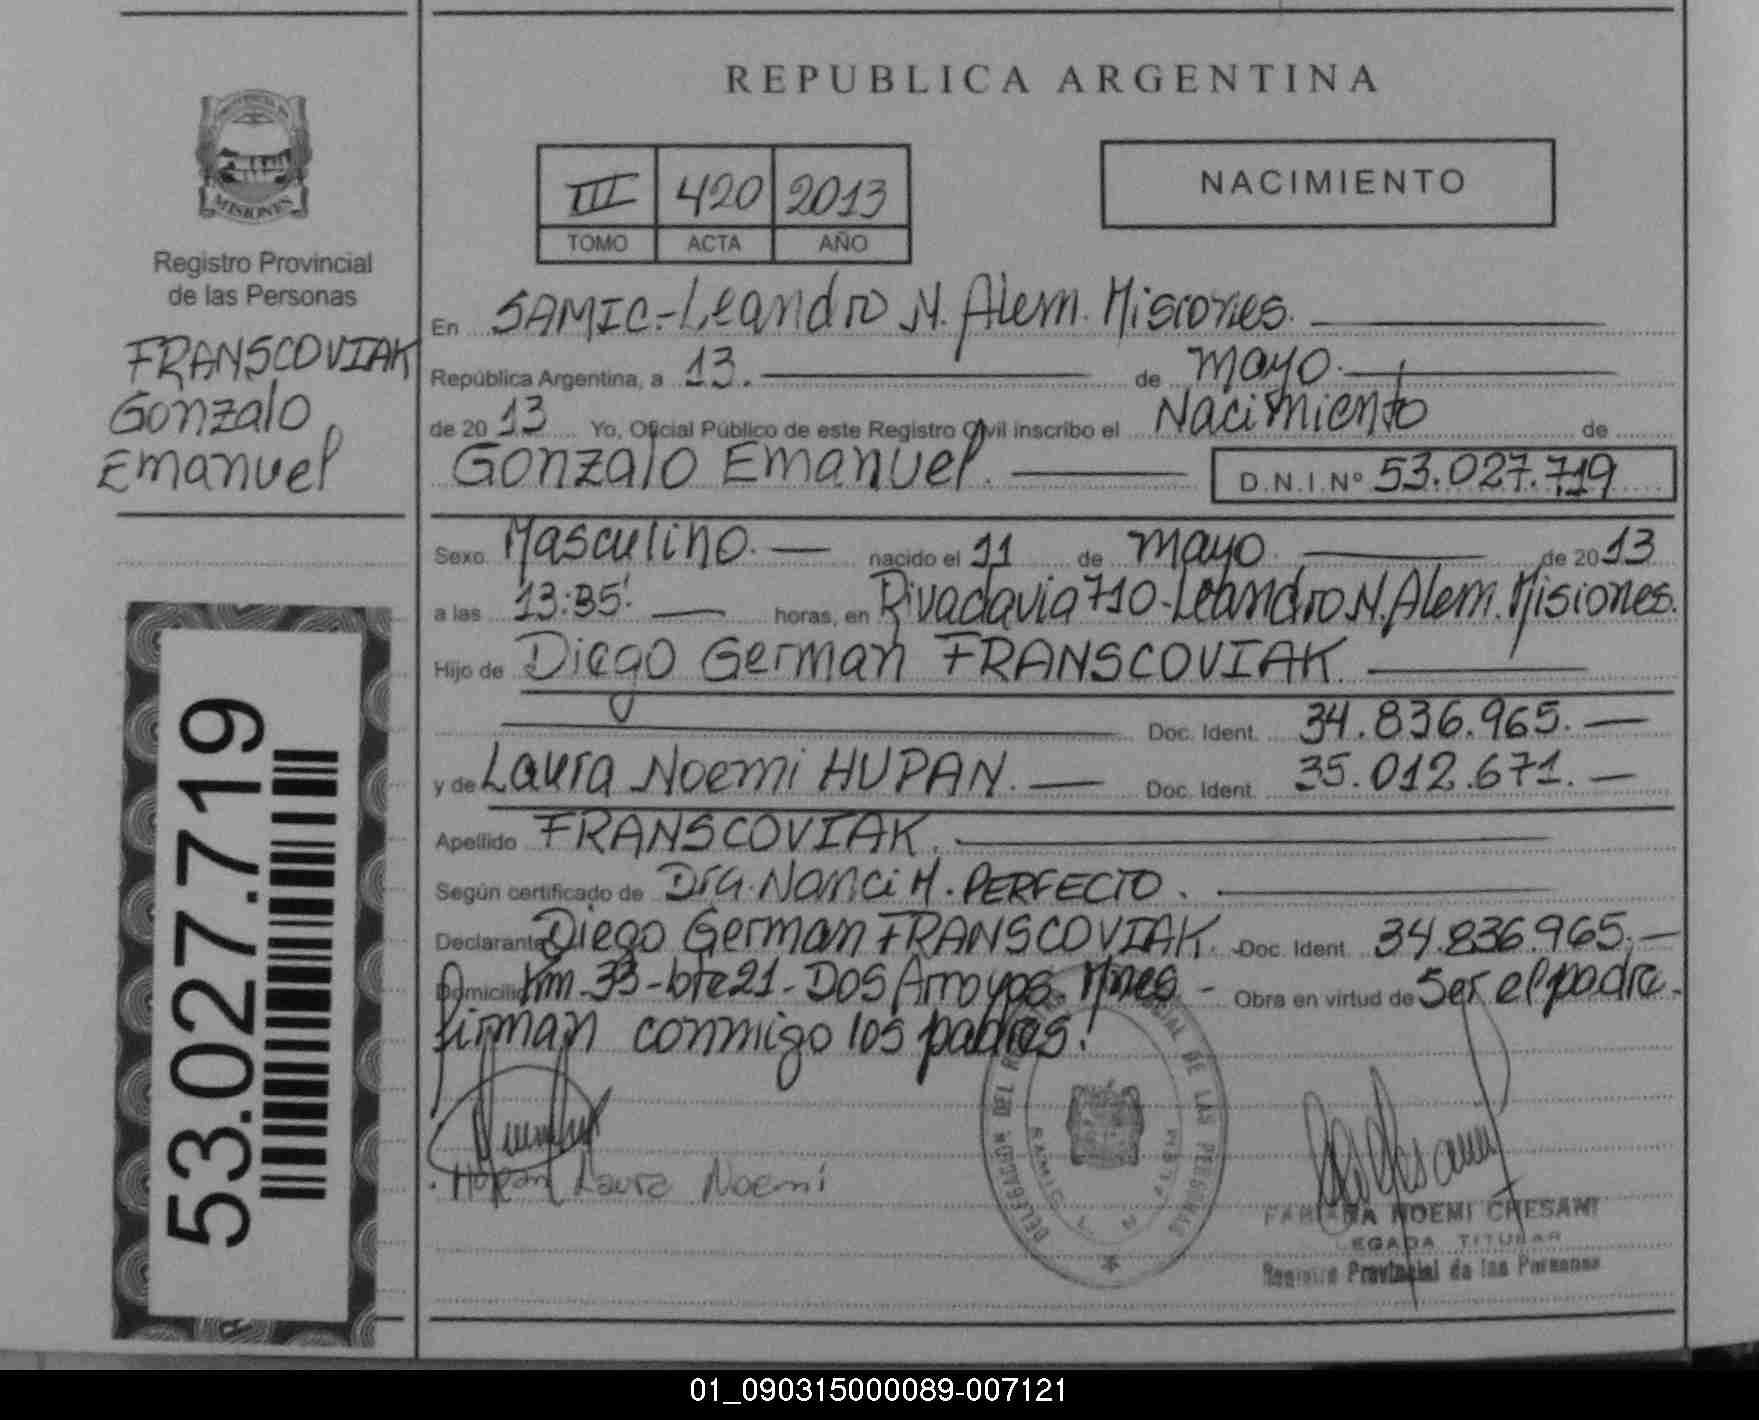 REPUBLICA ARGENTINA
MISIONES
Registro Provincial
de las Personas
FRANSCOVIAK
Gonzalo
Emanuel
53.027.719
III 420 2013
TOMO ACTA AÑO
NACIMIENTO
En SAMIC.-Leandro N. Alem. Misiones.
República Argentina, a 13. de mayo.
de 20 13 Yo, Oficial Público de este Registro Civil inscribo el Nacimiento de
Gonzalo Emanuel. D.N.I.Nº 53.027.719
Sexo Masculino. nacido el 11 de mayo. de 20 13
a las 13:35' horas, en Rivadavia 710-Leandro N. Alem. Misiones.
Hijo de Diego German FRANSCOVIAK.
Doc. Ident. 34.836.965.
y de Laura Noemi HUPAN. Doc. Ident. 35.012.671.
Apellido FRANSCOVIAK.
Según certificado de Dra. Nanci M. PERFECTO.
Declarante Diego German FRANSCOVIAK. Doc. Ident. 34.836.965.
Domicilio Km. 33-bte 21-DOS Arroyos. Mnes - Obra en virtud de Ser el padre.
firman conmigo los padres.
Hupan Laura Noemi
DELEGACION DEL DE LAS PERSONAS
FABIANA NOEMI CHESANI
LEGADA TITULAR
Registro Provincial de las Personas
01_090315000089-007121